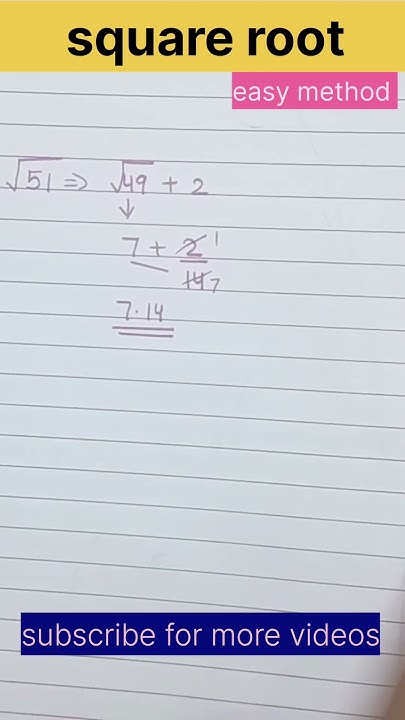 square root
easy method
√51 ⇒ √49 + 2
↓
7 + 2 1
14 7
7.14
subscribe for more videos